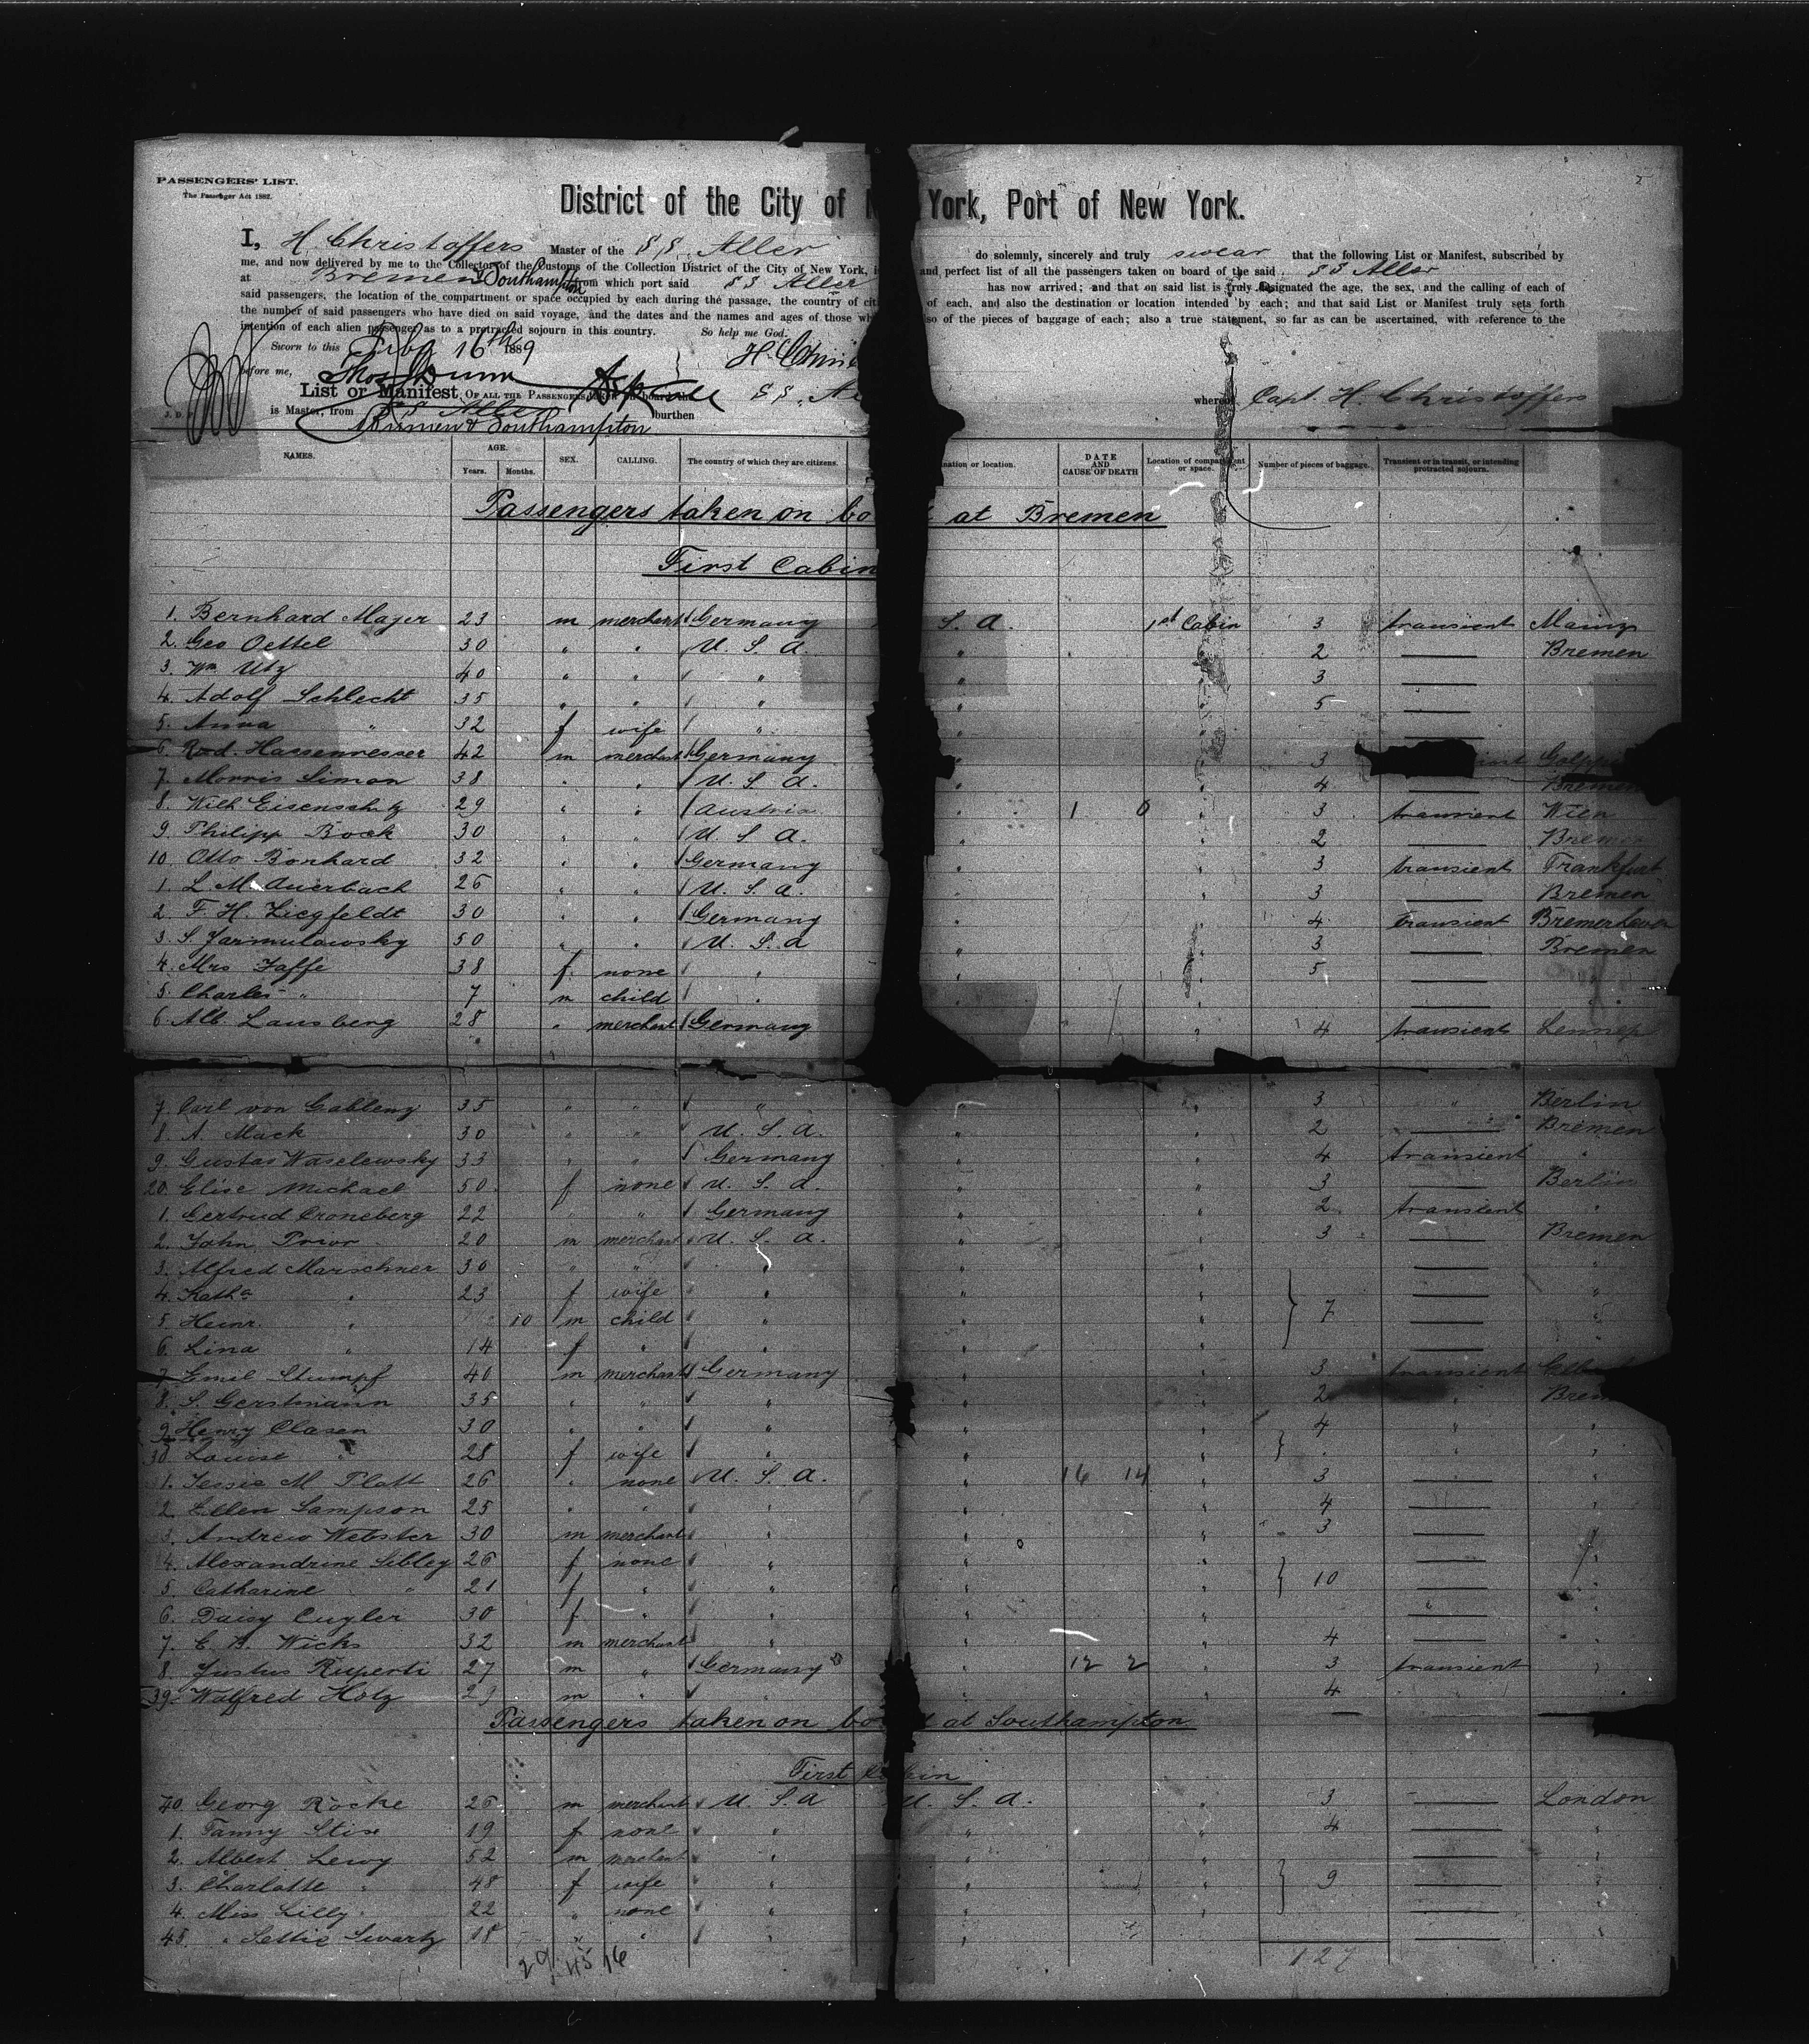 PASSENGERS' LIST.
The Passenger Act 1882.
District of the City of N York, Port of New York.
I, H. Christoffers Master of the SS. Aller do solemnly, sincerely and truly swear that the following List or Manifest, subscribed by
me, and now delivered by me to the Collector of the Customs of the Collection District of the City of New York, and perfect list of all the passengers taken on board of the said SS Aller
at Bremen & Southampton from which port said SS Aller has now arrived; and that on said list is truly designated the age, the sex, and the calling of each of
said passengers, the location of the compartment or space occupied by each during the passage, the country of cit of each, and also the destination or location intended by each; and that said List or Manifest truly sets forth
the number of said passengers who have died on said voyage, and the dates and the names and ages of those wh so of the pieces of baggage of each; also a true statement, so far as can be ascertained, with reference to the
intention of each alien passenger as to a protracted sojourn in this country. So help me God.
Sworn to this Feby 16th 1889 H. Chris
before me, Thos Dunn
List or Manifest OF ALL THE PASSENGERS taken on board the SS. Al whereof Capt. H. Christoffers
is Master, from SS Aller burthen
Bremen & Southampton
NAMES. AGE. Years. Months. SEX. CALLING. The country of which they are citizens. nation or location. DATE AND CAUSE OF DEATH Location of compartment or space. Number of pieces of baggage. Transient or in transit, or intending protracted sojourn.
Passengers taken on bo at Bremen
First Cabin
1. Bernhard Mayer 23 m merchant Germany S. A. 1st Cabin 3 transient Mainz
2. Geo Oettel 30 " " U. S. A. " " 2 — Bremen
3. Wm Utz 40 " " " " " 3 —
4. Adolf Schlecht 35 " " " " " 5 —
5. Anna " 32 f wife " " " —
6. Rud. Hassenresser 42 m merchant Germany " 3
7. Morris Simon 38 " " U. S. A. " " 4 — Bremen
8. Wilh Eisenschitz 29 " " Austria " 1 0 " 3 transient Wien
9. Philipp Bock 30 " " U. S. A. " " 2 — Bremen
10. Otto Bonhard 32 " " Germany " " 3 transient Frankfurt
1. L. M. Auerbach 26 " " U. S. A. " " 3 — Bremen
2. F. H. Ziegfeldt 30 " " Germany " " 4 transient Bremerhaven
3. S. Jarmulowsky 50 " " U. S. A " " 3 — Bremen
4. Mrs Jaffe 38 f. none " " " 5 —
5. Charles " 7 m child " " " —
6. Alb. Lausberg 28 " merchant Germany " " 4 transient Lennep
7. Carl von Gablenz 35 " " " " " 3 " Berlin
8. A. Mack 30 " " U. S. A. " " 2 — Bremen
9. Gustav Waselewsky 33 " " Germany " " 4 transient "
20. Elise Michael 50 f none U. S. A. " " 3 — Berlin
1. Gertrud Croneberg 22 " " Germany " 2 transient "
2. John Prior 20 m merchant U. S. A. " " 3 — Bremen
3. Alfred Marschner 30 " " " " " — "
4. Katha " 23 f wife " " " — "
5. Heinr. " 10 m child " " " 7 — "
6. Lina " 14 f " " " " — "
7. Emil Stumpf 40 m merchant Germany " " 3 transient
8. S. Gerstmann 35 " " " " " 2 " Brem
9. Henry Clasen 30 " " " " " 4 " "
30. Louise " 28 f wife " " " " " "
1. Jessie M Platt 26 " none U. S. A. " 16 14 " 3 — "
2. Ellen Sampson 25 " " " " " 4 — "
3. Andrew Webster 30 m merchant " " " 3 —
4. Alexandrine Sibley 26 f none " " " — "
5. Catharine " 21 f " " " " 10 — "
6. Daisy Cuyler 30 f " " " " — "
7. C. B. Wicks 32 m merchant " " " 4 — "
8. Justus Ruperti 27 m " Germany " 12 2 " 3 transient "
39. Walfred Hotz 29 m " " " " 4
Passengers taken on bo at Southampton
First Cabin
40. Georg Röcke 26 m merchant U. S. A U. S. A. " 3 — London
1. Fanny Stix 19 f none " " " 4 — "
2. Albert Levy 52 m merchant " " " — "
3. Charlotte " 48 f wife " " " 9 — "
4. Miss Lilly " 22 " none " " " — "
45. " Settie Swartz 18 " " " " — "
29 45 16 127